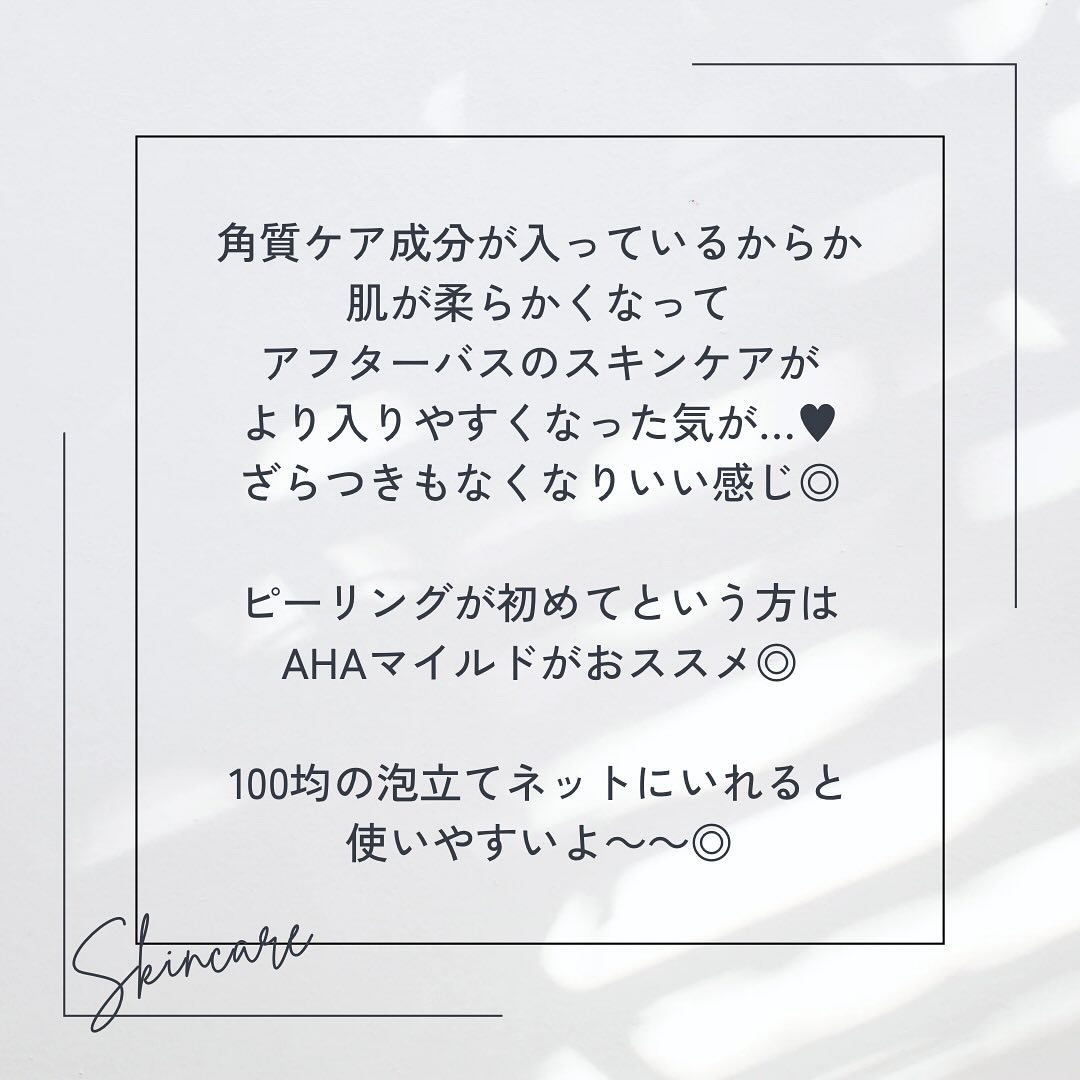 角質ケア成分が入っているからか
肌が柔らかくなって
アフターバスのスキンケアが
より入りやすくなった気が...♥
ざらつきもなくなりいい感じ◎
ピーリングが初めてという方は
AHAマイルドがおススメ◎
100均の泡立てネットにいれると
使いやすいよ〜〜◎
Skincare